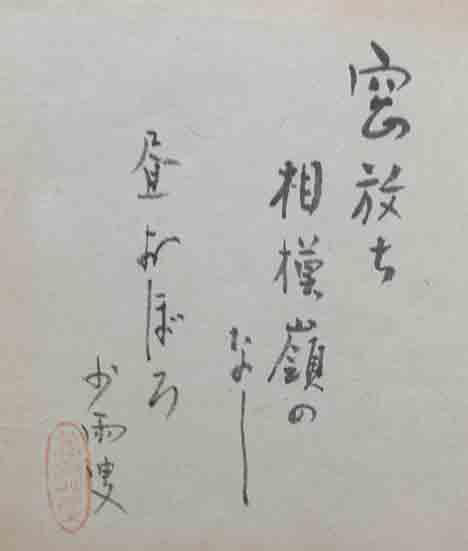 窓放ち
相模嶺の
なし
昼おぼろ
少雨叟